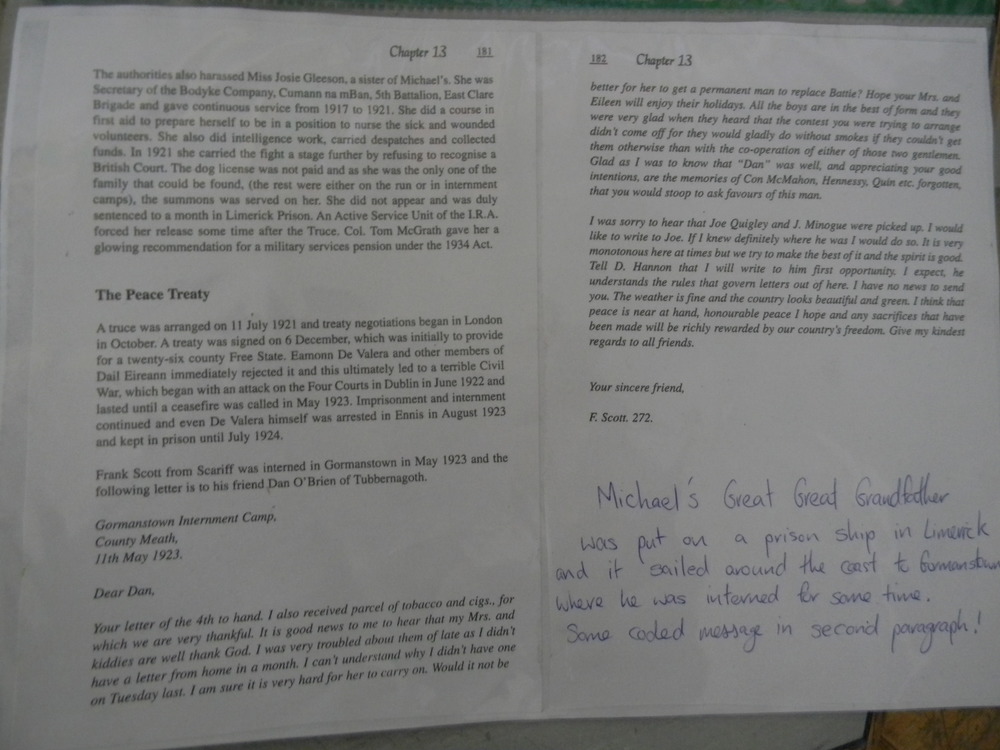 Chapter 13 181
The authorities also harassed Miss Josie Gleeson, a sister of Michael's. She was
Secretary of the Bodyke Company, Cumann na mBan, 5th Battalion, East Clare
Brigade and gave continuous service from 1917 to 1921. She did a course in
first aid to prepare herself to be in a position to nurse the sick and wounded
volunteers. She also did intelligence work, carried despatches and collected
funds. In 1921 she carried the fight a stage further by refusing to recognise a
British Court. The dog license was not paid and as she was the only one of the
family that could be found, (the rest were either on the run or in internment
camps), the summons was served on her. She did not appear and was duly
sentenced to a month in Limerick Prison. An Active Service Unit of the I.R.A.
forced her release some time after the Truce. Col. Tom McGrath gave her a
glowing recommendation for a military services pension under the 1934 Act.
The Peace Treaty
A truce was arranged on 11 July 1921 and treaty negotiations began in London
in October. A treaty was signed on 6 December, which was initially to provide
for a twenty-six county Free State. Eamonn De Valera and other members of
Dail Eireann immediately rejected it and this ultimately led to a terrible Civil
War, which began with an attack on the Four Courts in Dublin in June 1922 and
lasted until a ceasefire was called in May 1923. Imprisonment and internment
continued and even De Valera himself was arrested in Ennis in August 1923
and kept in prison until July 1924.
Frank Scott from Scariff was interned in Gormanstown in May 1923 and the
following letter is to his friend Dan O'Brien of Tubbernagoth.
Gormanstown Internment Camp,
County Meath,
11th May 1923.
Dear Dan,
Your letter of the 4th to hand. I also received parcel of tobacco and cigs., for
which we are very thankful. It is good news to me to hear that my Mrs. and
kiddies are well thank God. I was very troubled about them of late as I didn't
have a letter from home in a month. I can't understand why I didn't have one
on Tuesday last. I am sure it is very hard for her to carry on. Would it not be
182 Chapter 13
better for her to get a permanent man to replace Battie? Hope your Mrs. and
Eileen will enjoy their holidays. All the boys are in the best of form and they
were very glad when they heard that the contest you were trying to arrange
didn't come off for they would gladly do without smokes if they couldn't get
them otherwise than with the co-operation of either of those two gentlemen.
Glad as I was to know that "Dan" was well, and appreciating your good
intentions, are the memories of Con McMahon, Hennessy, Quin etc. forgotten,
that you would stoop to ask favours of this man.
I was sorry to hear that Joe Quigley and J. Minogue were picked up. I would
like to write to Joe. If I knew definitely where he was I would do so. It is very
monotonous here at times but we try to make the best of it and the spirit is good.
Tell D. Hannon that I will write to him first opportunity. I expect, he
understands the rules that govern letters out of here. I have no news to send
you. The weather is fine and the country looks beautiful and green. I think that
peace is near at hand, honourable peace I hope and any sacrifices that have
been made will be richly rewarded by our country's freedom. Give my kindest
regards to all friends.
Your sincere friend,
F. Scott. 272.
Michael's Great Great Grandfather
was put on a prison ship in Limerick
and it sailed around the coast to Gormanstown
where he was interned for some time.
Some coded message in second paragraph!